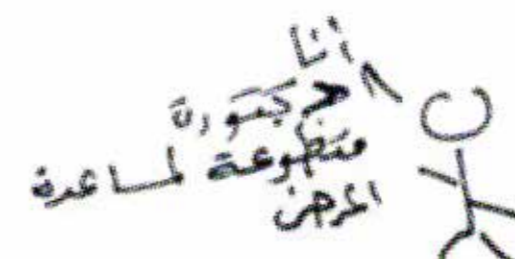 أنا
دكتورة
متطوعة لمساعدة
المرضى